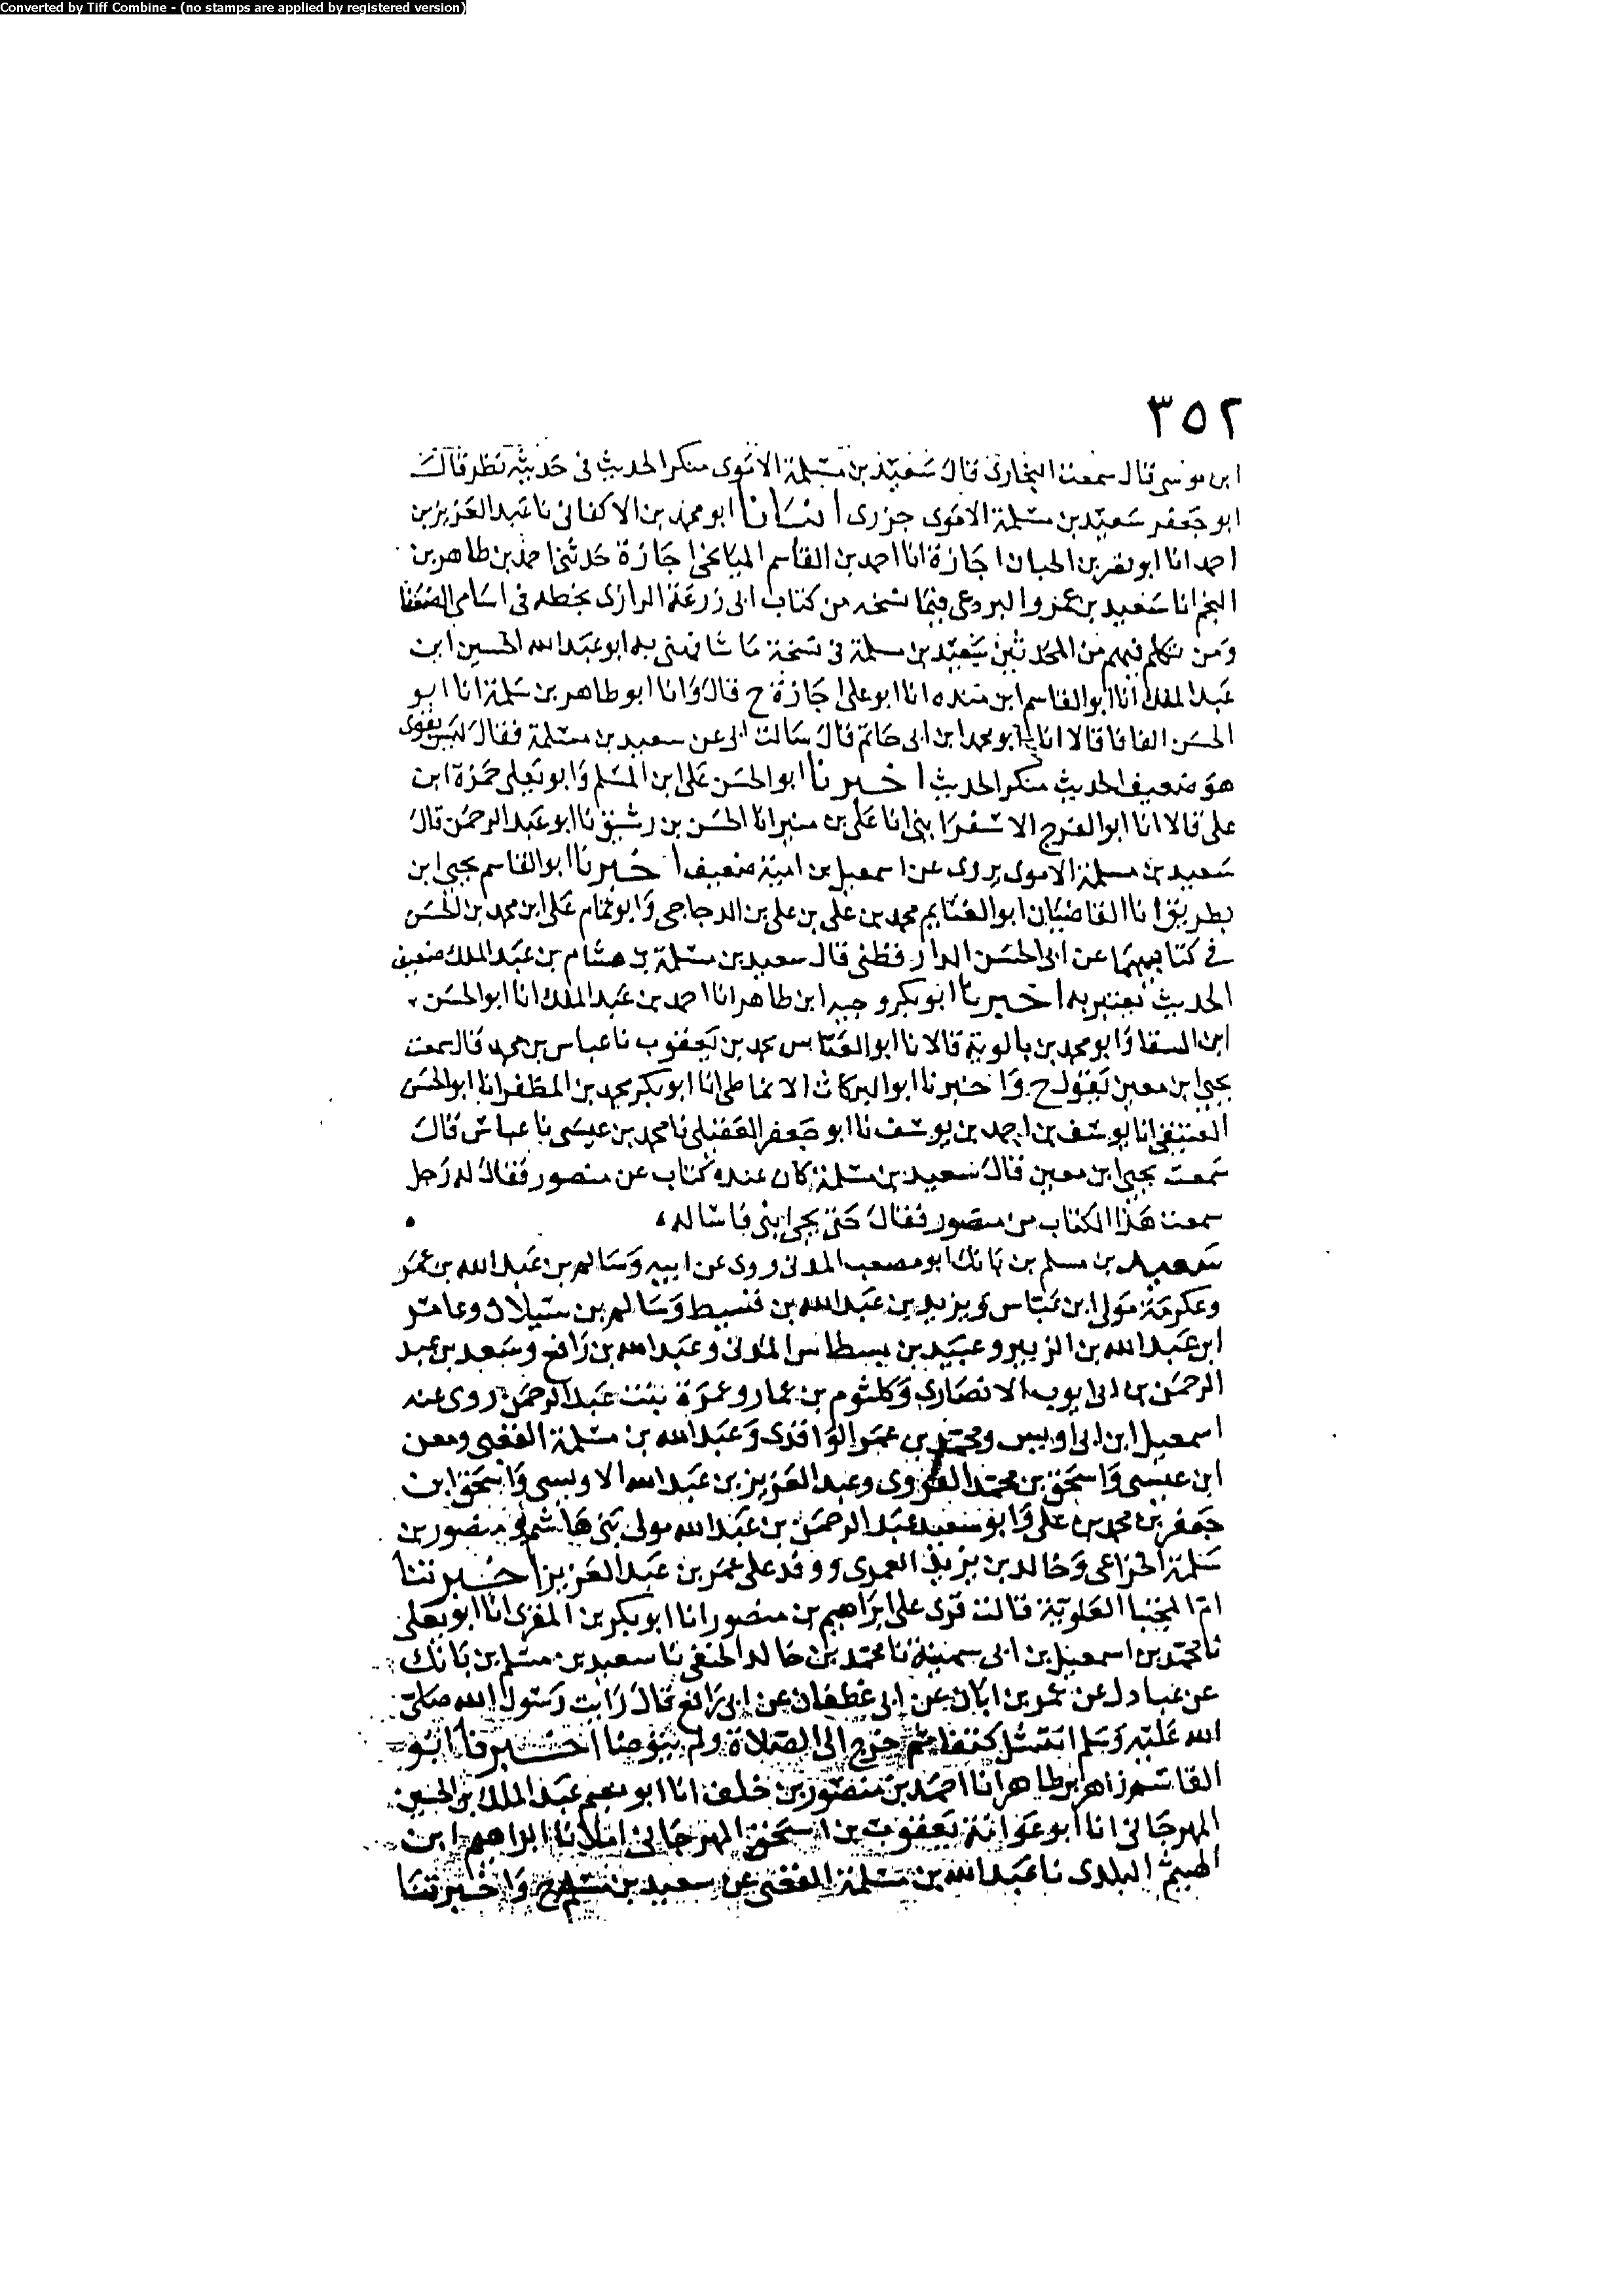 Converted by Tiff Combine - (no stamps are applied by registered version)
٣٥٢
ابن موسى قال سمعت البخارى قال سَعيد بن مَسْلمة الاموى منكر الحديث فى حديثه نظر قال
ابو جعفر سَعيد بن مسلمة الاموى جزرى انبانا ابو محمد بن الاكفانى نا عبد العَزيز بن
احمد انا ابو نصر بن الجبان اجازة انا احمد بن القاسم الميانجى اجازة حدثنى احمد بن طاهر بن
النجم انا سَعيد بن عمرو البردعى فيما نسخه من كتاب ابى زرعة الرازى بخطه فى اسامى الضعفا
وَمن تكلم فيهم من المحدثين سَعيد بن مسلمة فى نسخة مَا شافهنى به ابو عبَد الله الحسين ابن
عَبد الملك انا ابو القاسم ابن منده انا ابو على اجازة ح قال وَانا ابو طاهر بن سَلمة انا ابو
الحسَن الفافا قالا انا ابو محمد ابن ابى حَاتم قال سَالت ابى عن سعيد بن مسَلمة فقال ليس بقوى
هوَ ضعيف الحديث منكر الحديث اخبرنا ابو الحسَن عَلى ابن المسَلم وَابو يَعلى حَمزة ابن
على قالا انا ابو الفرج الاسفرَاينى انا عَلى بن منير انا الحسَن بن رشيق نا ابو عَبد الرحمن قال
سَعيد بن مسلمة الاموى يروى عن اسمعيل بن امية ضعيف اخبرنا ابو القاسم يحيى ابن
بطريق انا القاضيَان ابو الغنَايم محمد بن على بن على بن الدجاجى وَابو تمام عَلى ابن محمد بن الحسَن
فى كتابيهمَا عن ابى الحسَن الدار قطنى قال سعيد بن مسَلمة بن هشام بن عَبد الملك ضعيف
الحديث يعتبر به اخبرنا ابو بكر وجيه ابن طاهر انا احمد بن عَبد الملك انا ابو الحسَن
ابن السقا وَابو محمد بن بالوية قالا نا ابو العبَاس محمد بن يَعقوب نا عباس بن محمد قال سمعت
يحيى ابن معين يَقول ح وَاخبرنا ابو البركات الانماطى انا ابو بكر محمد بن المظفر انا ابو الحسَن
العتيقى انا يوسَف بن احمد بن يوسَف نا ابو جَعفر العقيلى نا محمد بن عيسَى نا عباس قال
سَمعت يحيى ابن معين قال سَعيد بن مسَلمة كان عنده كتاب عن منصور فقال له رَجل
سمعت هَذا الكتاب من منصور فقال حَتى يجى ابنى فاسَاله
سَعيد بن مسلم بن بَانك ابو مصعب المدنى روى عن ابيه وَسَالم بن عَبد الله بن عمَر
وعكرمَة مَولى ابن عَبَاس وَيزيد بن عَبد الله بن قسيط وَسَالم بن سَبلان وعامر
ابن عَبد الله بن الزبير وعبيَد بن بسطاس المدنى وعَبد الله بن رَافع وسَعد بن عبد
الرحمَن بن ابى ايوب الانصَارى وَكلثوم بن عمار وعمرَة بنت عَبد الرحمَن روى عنه
اسمعيل ابن ابى اويس ومحمد بن عمَر الوَاقدى وَعَبد الله بن مسَلمة القعنبى ومعن
ابن عيسى وَاسحَق بن محمد الفروى وعبد العَزيز بن عَبد الله الاويسى وَاسحَق ابن
جَعفر بن محمد بن عَلى وَابو سَعيد عَبد الرحمَن بن عَبد الله مولى بَنى هَاشم ومنصور بن
سَلمة الخزاعى وَخالد بن يزيد العمرى ووفد على عمَر بن عَبد العَزيز اخبرتنا
امّ المجتبا العَلويّة قالت قرى على ابرَاهيم بن منصور انا ابو بكر بن المقرى انا ابو يَعلى
نا محمّد بن اسمعيل بن ابى سمينة نا محمّد بن خالد الحنفى نا سعيد بن مسَلم بن بَانك
عن عبادل عن عمر بن ابَان عن ابى غطفان عن ابى رَافع قال رَايت رَسول الله صَلى
الله عَليه وَسَلم انتشل كتفا ثم خرج الى الصَلاة ولم يَتوضا اخبرنا ابو
القاسَم زاهر بن طاهر انا احمَد بن منصوُر بن خلف انا ابو نعيم عَبد الملك بن الحسَين
المهرجَانى انا ابو عَوانة يَعقوب بن اسحَق المهرجَانى املا نا ابراهيم ابن
الهيثم البلدى نا عَبد الله بن مَسْلمة القعنبى عن سعيد بن مسَلم ح وَاخبرتنَا